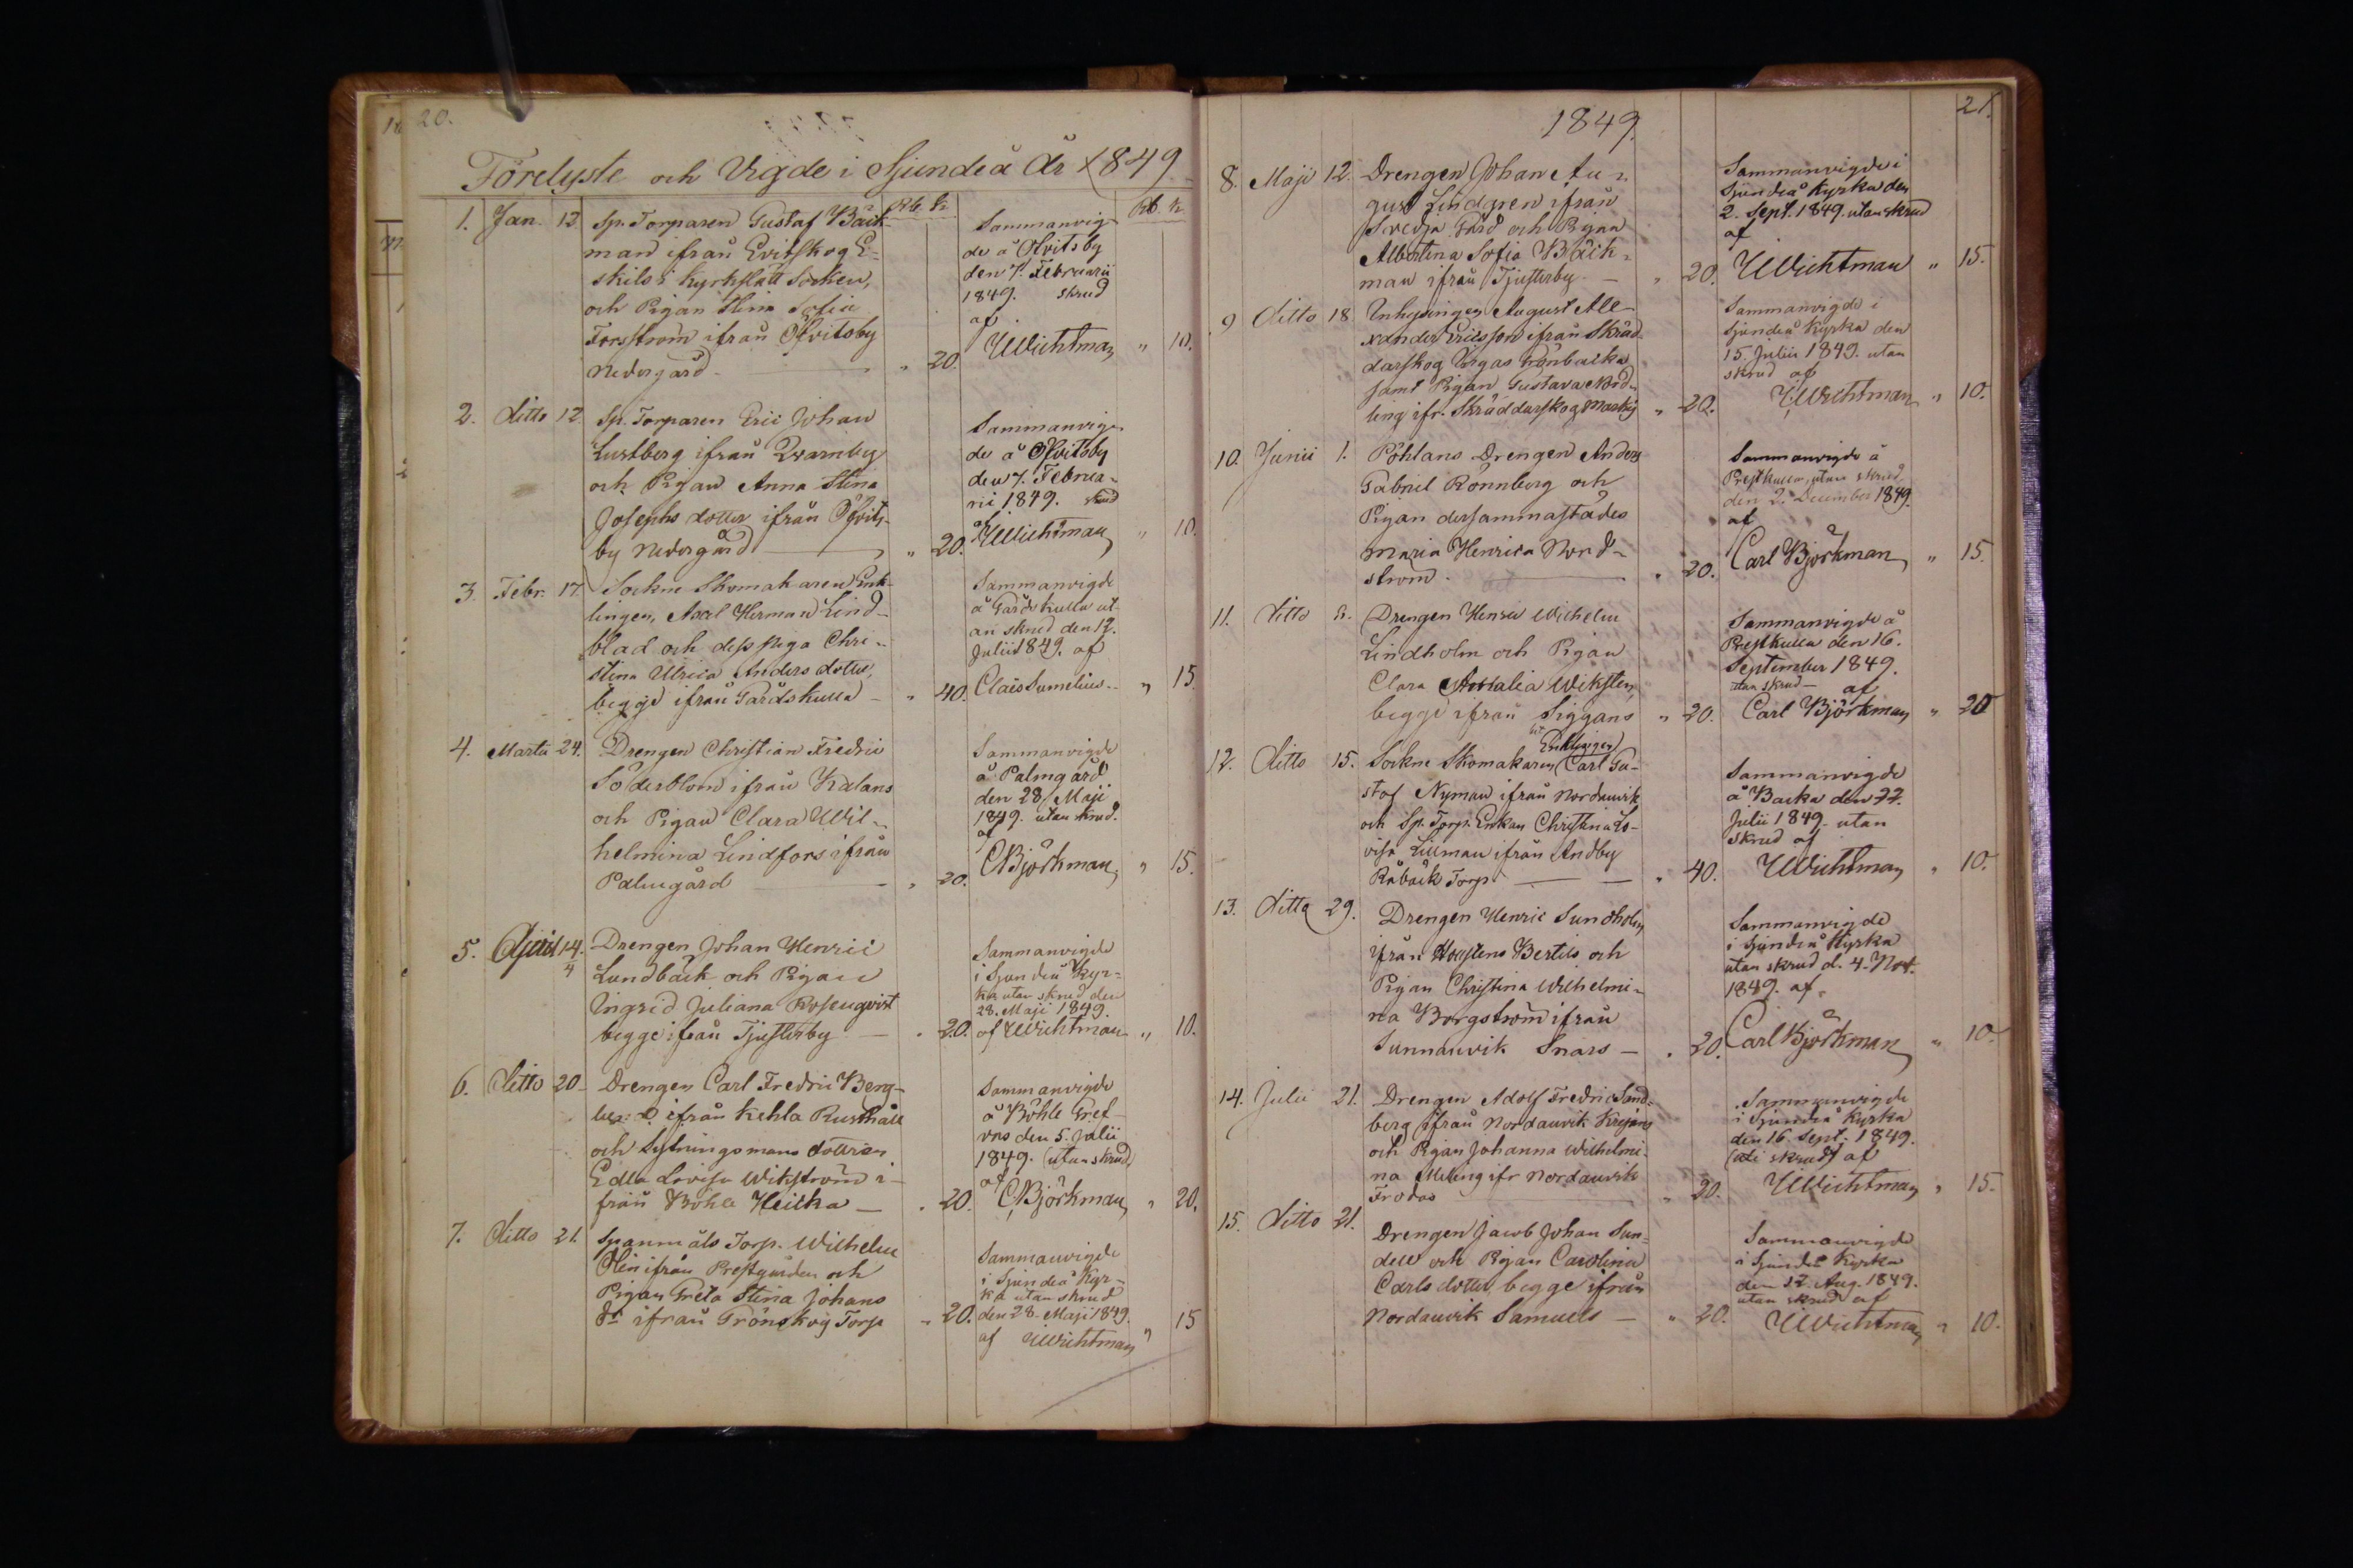 20.
Förelyste och Vigde i Sjundeå År 1849
Rb. k.
Rb. k
1. Jan. 12. Sp. Torparen Gustaf Bäck-
man ifrån Evitskog E-
skils i Kyrkslätt Socken,
och Pigan Stina Sofia
Forsström ifrån Öfvitsby
Nedergård " 20.
Sammanvig-
de å Öfvitsby
den 7. Februarii
1849. skrud
af
Wichtman " 10.
2. Ditto 12. Sp. Torparen Eric Johan
Lustberg ifrån Qvarnby
och Pigan Anna Stina
Josephs dotter ifrån Öfvits-
by Nedergård " 20.
Sammanvig-
de å Öfvitsby
den 7. Februa-
rii 1849. skrud
af
Wichtman " 10.
3. Febr. 17. Sockne Skomakaren Enk-
lingen, Axel Herman Lind-
blad och dess Piga Chri-
stina Ulrica Anders dotter,
begge ifrån Gårdskulla - " 40.
Sammanvigde
å Gårdskulla ut-
an skrud den 12.
Julii 1849. af
Claës Sumelius. " 15.
4. Martii 24. Drengen Christian Fredric
Söderblom ifrån Kalans
och Pigan Clara Wil-
helmina Lindfors ifrån
Palmgård - " 20.
Sammanvigde
å Palmgård
den 28 Maji
1849. utan skrud.
af
CBjörkman " 15.
5. April 14. Drengen Johan Henric
4
Lundbäck och Pigan
Ingrid Juliana Rosenqvist
begge ifrån Tjusterby - " 20.
Sammanvigde
i Sjundeå Kyr-
ka utan skrud den
28. Maji 1849.
af Wichtman " 10.
6. Ditto 20 Drengen Carl Fredric Berg-
ifrån Kehla Rusthåll
och Sytningsmans dottren
Edla Lovisa Wikström i-
från Böhle Heicka - " 20.
Sammanvigde
å Böhle Gref-
vas den 5. Julii
1849. (utan skrud)
af
CBjörkman " 20.
7. Ditto 21. Spanmåls Torp. Wilhelm
Olin ifrån Prestgården och
Pigan Greta Stina Johans
dr ifrån Grönskog Torp " 20.
Sammanvigde
i Sjundeå Kyr-
ka utan skrud
den 28. Maji 1849.
af Wichtman " 15
1849.
21.
8. Maji 12. Drengen Johan Au-
gust Lindgren ifrån
Svedja Gård och Pigan
Albertina Sofia Bäck-
man ifrån Tjusterby - " 20.
Sammanvigde i
Sjundeå Kyrka den
2. Sept. 1849. utan skrud
af
Wichtman " 15.
9 Ditto 18 Inhysingen August Ale-
xander Ericsson ifrån Skräd-
darskog
samt Pigan Gustava Nord-
ling ifr. Skräddarskog " 20.
Sammanvigde i
Sjundeå Kyrka den
15. Julii 1849. utan
skrud af
Wichtman " 10.
10. Junii 1. Pöhlans Drengen Anders
Gabriel Rönnberg och
Pigan dersammastädes
Maria Henrica Nord-
ström. " 20.
Sammanvigde å
Prestkulla, utan skrud
den 2. December 1849.
af
Carl Björkman " 15.
11. Ditto Drengen Henric Wilhelm
Lindholm och Pigan
Clara Wiksten,
begge ifrån Siggans " 20.
Sammanvigde å
Prestkulla den 16.
September 1849.
utan skrud - af
Carl Björkman " 20
Enklingen
12. Ditto 15. Sockne Skomakaren Carl Gu-
staf Nyman ifrån Nordanvik
och Sp. Torp. Enkan Christina Lo-
visa Lillman ifrån Andby
Råbäck Torp - " 40.
Sammanvigde
å Backa den 22.
Julii 1849. utan
skrud af
Wichtman " 10.
13. Ditto 29. Drengen Henric Sundholm
ifrån Bertils och
Pigan Christina Wilhelmi-
na Borgström ifrån
Sunnanvik Snars - " 20.
Sammanvigde
i Sjundeå Kyrka
utan skrud d. 4. Nov.
1849. af.
Carl Björkman " 10.
14. Julii 21. Drengen Adolf Fredric Sand-
berg ifrån Nordanvik Krejans
och Pigan Johanna Wilhelmi-
na ifr Nordanvik
Frodas " 20.
Sammanvigde
i Sjundeå Kyrka
den 16 Sept. 1849.
skrud) af
Wichtman " 15.
15. Ditto 21. Drengen Jacob Johan Sun-
dell och Pigan Carolina
Carls dotter, begge ifrån
Nordanvik Samuels - " 20.
Sammanvigde
i Sjundeå Kyrka
den 12 Aug. 1849.
utan skrud af
Wichtman " 10.